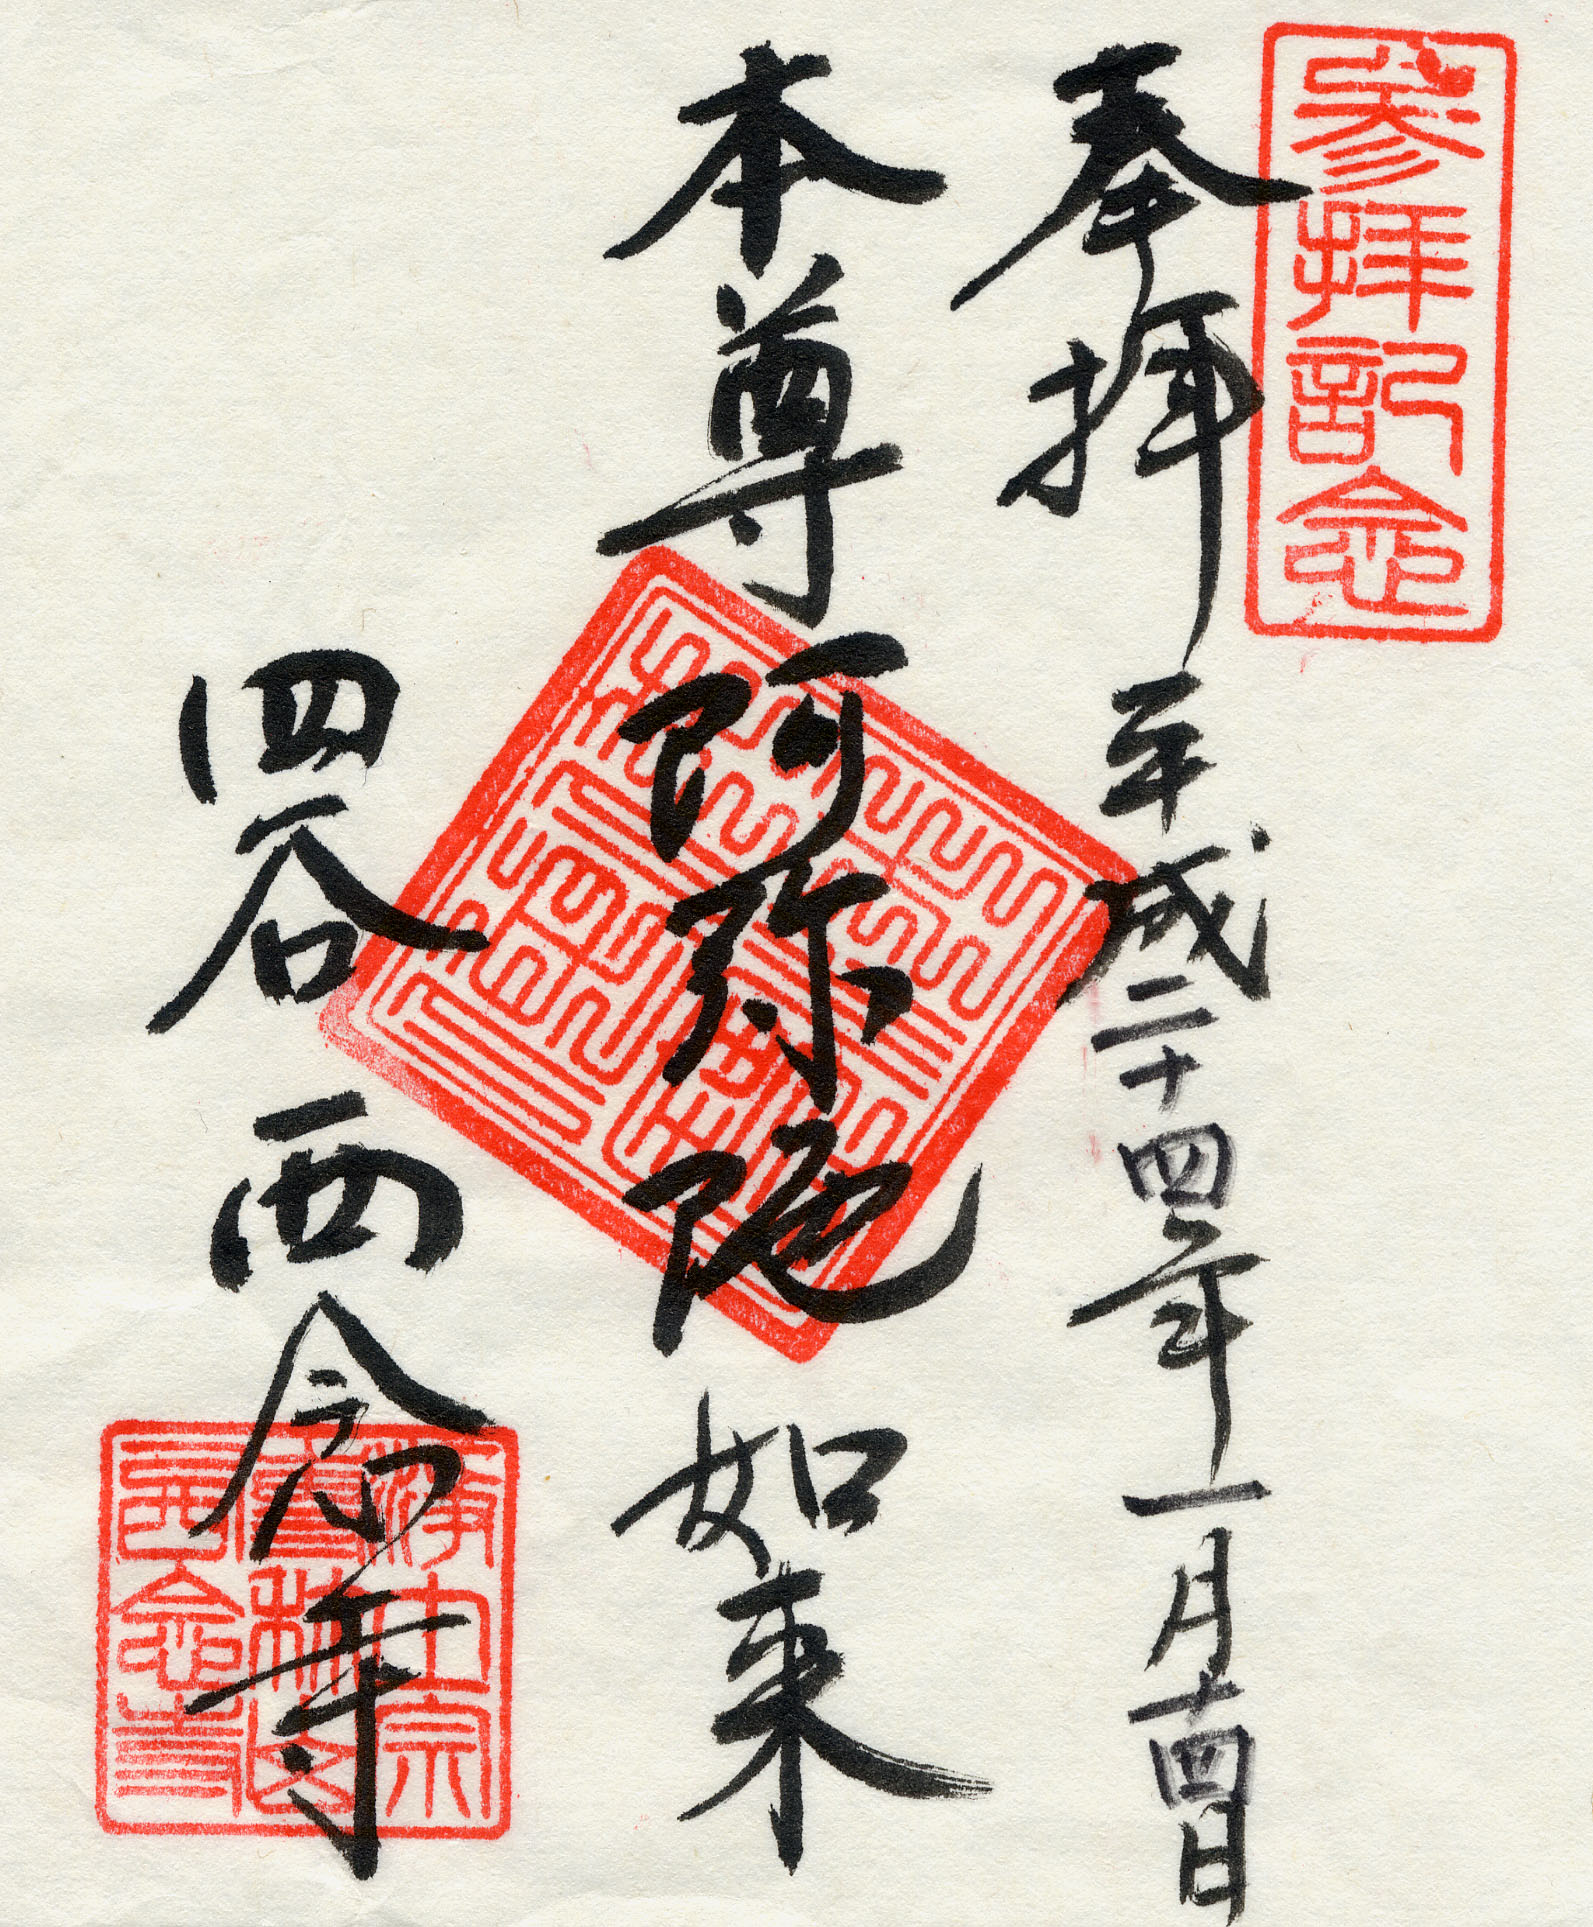 参拝記念
奉拝 平成二十四年一月十四日
本尊 阿弥陀如来
四谷 西念寺
浄土宗
専称山
西念寺